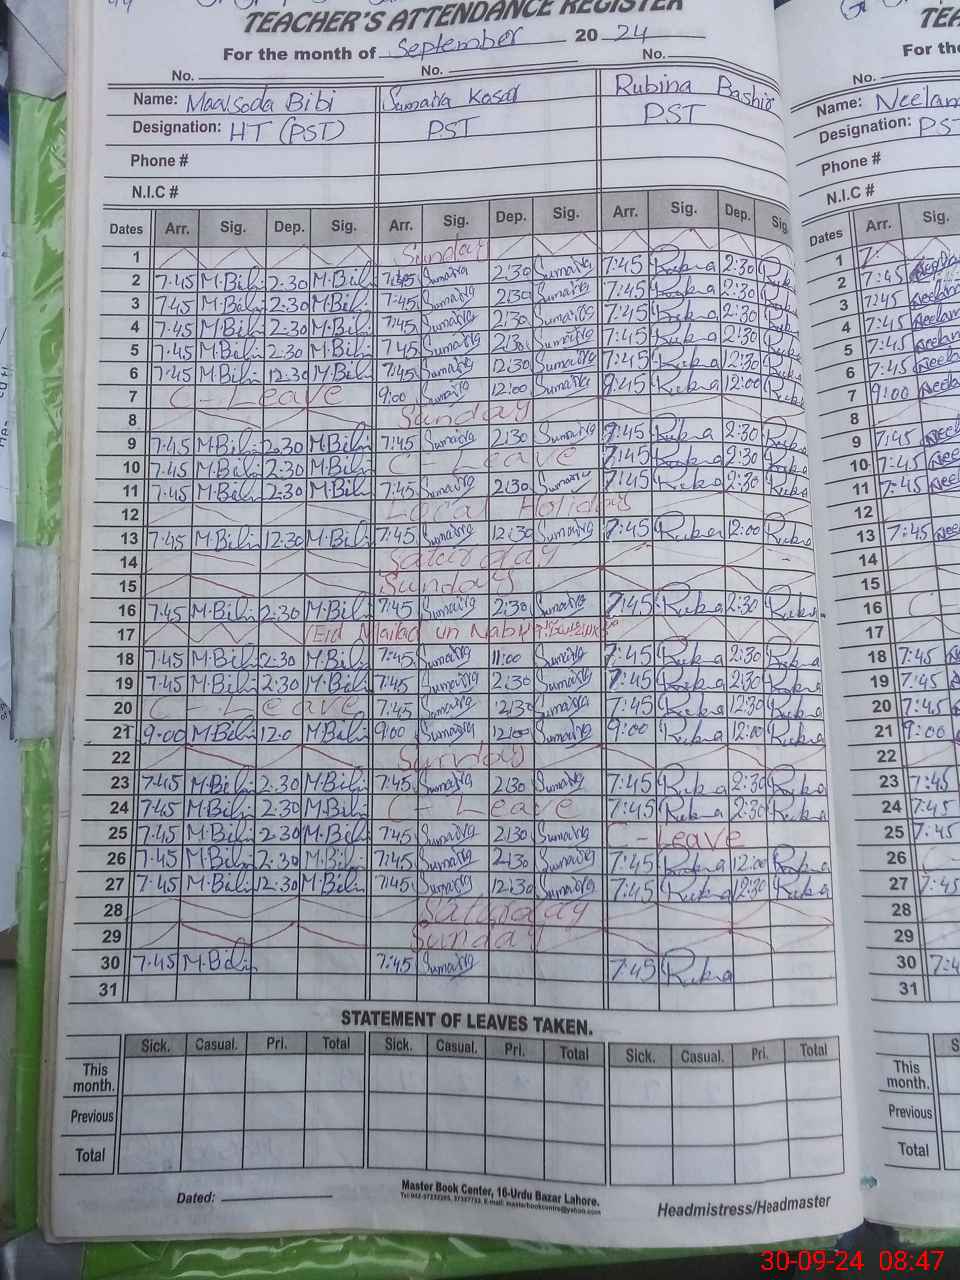 TEACHER'S ATTENDANCE REGISTER
For the month of September 20 24
No. No. No.
Name: Maqsoda Bibi Sumaira Kosar Rubina Bashir
Designation: HT (PST) PST PST
Phone #
N.I.C #
Dates Arr. Sig. Dep. Sig. Arr. Sig. Dep. Sig. Arr. Sig. Dep. Sig
1 Sunday
2 7:45 M.Bibi 2:30 M.Bibi 7:45 Sumaira 2:30 Sumaira 7:45 Rubna 2:30 Rub
3 7:45 M.Bibi 2:30 M.Bibi 7:45 Sumaira 2:30 Sumaira 7:45 Rubna 2:30 Rub
4 7:45 M.Bibi 2:30 M.Bibi 7:45 Sumaira 2:30 Sumaira 7:45 Rubna 2:30 Rub
5 7:45 M.Bibi 2:30 M.Bibi 7:45 Sumaira 2:30 Sumaira 7:45 Rubna 2:30 Rub
6 7:45 M.Bibi 12:30 M.Bibi 7:45 Sumaira 12:30 Sumaira 7:45 Rubna 12:30 Rub
7 C - Leave 9:00 Sumaira 12:00 Sumaira 8:45 Rubna 12:00 Rub
8 Sunday
9 7:45 M.Bibi 2:30 M.Bibi 7:45 Sumaira 2:30 Sumaira 7:45 Rubna 2:30 Rub
10 7:45 M.Bibi 2:30 M.Bibi C - Leave 7:45 Rubna 2:30 Rub
11 7:45 M.Bibi 2:30 M.Bibi 7:45 Sumaira 2:30 Sumaira 7:45 Rubna 2:30 Rub
12 Local Holiday
13 7:45 M.Bibi 12:30 M.Bibi 7:45 Sumaira 12:30 Sumaira 7:45 Rubna 12:00 Rub
14 Saturday
15 Sunday
16 7:45 M.Bibi 2:30 M.Bibi 7:45 Sumaira 2:30 Sumaira 7:45 Rubna 2:30 Rubna
17 Eid Mailad un Nabi
18 7:45 M.Bibi 2:30 M.Bibi 7:45 Sumaira 11:00 Sumaira 7:45 Rubna 2:30 Rubna
19 7:45 M.Bibi 2:30 M.Bibi 7:45 Sumaira 2:30 Sumaira 7:45 Rubna 2:30 Rubna
20 C - Leave 7:45 Sumaira 12:30 Sumaira 7:45 Rubna 12:30 Rubna
21 9:00 M.Bibi 12:0 M.Bibi 9:00 Sumaira 12:00 Sumaira 9:00 Rubna 12:00 Rubna
22 Sunday
23 7:45 M.Bibi 2:30 M.Bibi 7:45 Sumaira 2:30 Sumaira 7:45 Rubna 2:30 Rubna
24 7:45 M.Bibi 2:30 M.Bibi C - Leave 7:45 Rubna 2:30 Rubna
25 7:45 M.Bibi 2:30 M.Bibi 7:45 Sumaira 2:30 Sumaira C - Leave
26 7:45 M.Bibi 2:30 M.Bibi 7:45 Sumaira 2:30 Sumaira 7:45 Rubna 12:00 Rubna
27 7:45 M.Bibi 12:30 M.Bibi 7:45 Sumaira 12:30 Sumaira 7:45 Rubna 12:30 Rubna
28 Saturday
29 Sunday
30 7:45 M.Bibi 7:45 Sumaira 7:45 Rubna
31
STATEMENT OF LEAVES TAKEN.
Sick. Casual. Pri. Total Sick. Casual. Pri. Total Sick. Casual. Pri. Total
This month.
Previous
Total
Dated:
Master Book Center, 16-Urdu Bazar Lahore.
Headmistress/Headmaster
TEA
For the
No.
Name: Neelam
Designation: PST
Phone #
N.I.C #
Dates Arr. Sig.
1 7:
2 7:45 Neelam
3 7:45 Neelam
4 7:45 Neelam
5 7:45 Neelam
6 7:45 Neela
7 9:00 Neela
8
9 7:45 Nee
10 7:45 Nee
11 7:45 Nee
12
13 7:45 Nee
14
15
16 C
17
18 7:45 N
19 7:45
20 7:45
21 9:00
22
23 7:45
24 7:45
25 7:45
26 C
27 7:45
28
29
30 7:4
31
S
This month.
Previous
Total
30-09-24 08:47